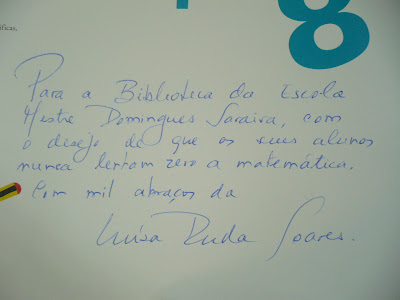 8
íficas,
Para a Biblioteca da Escola
Mestre Domingues Saraiva, com
o desejo de que os seus alunos
nunca tenham zero a matemática.
Com mil abraços da
Luísa Ducla Soares.